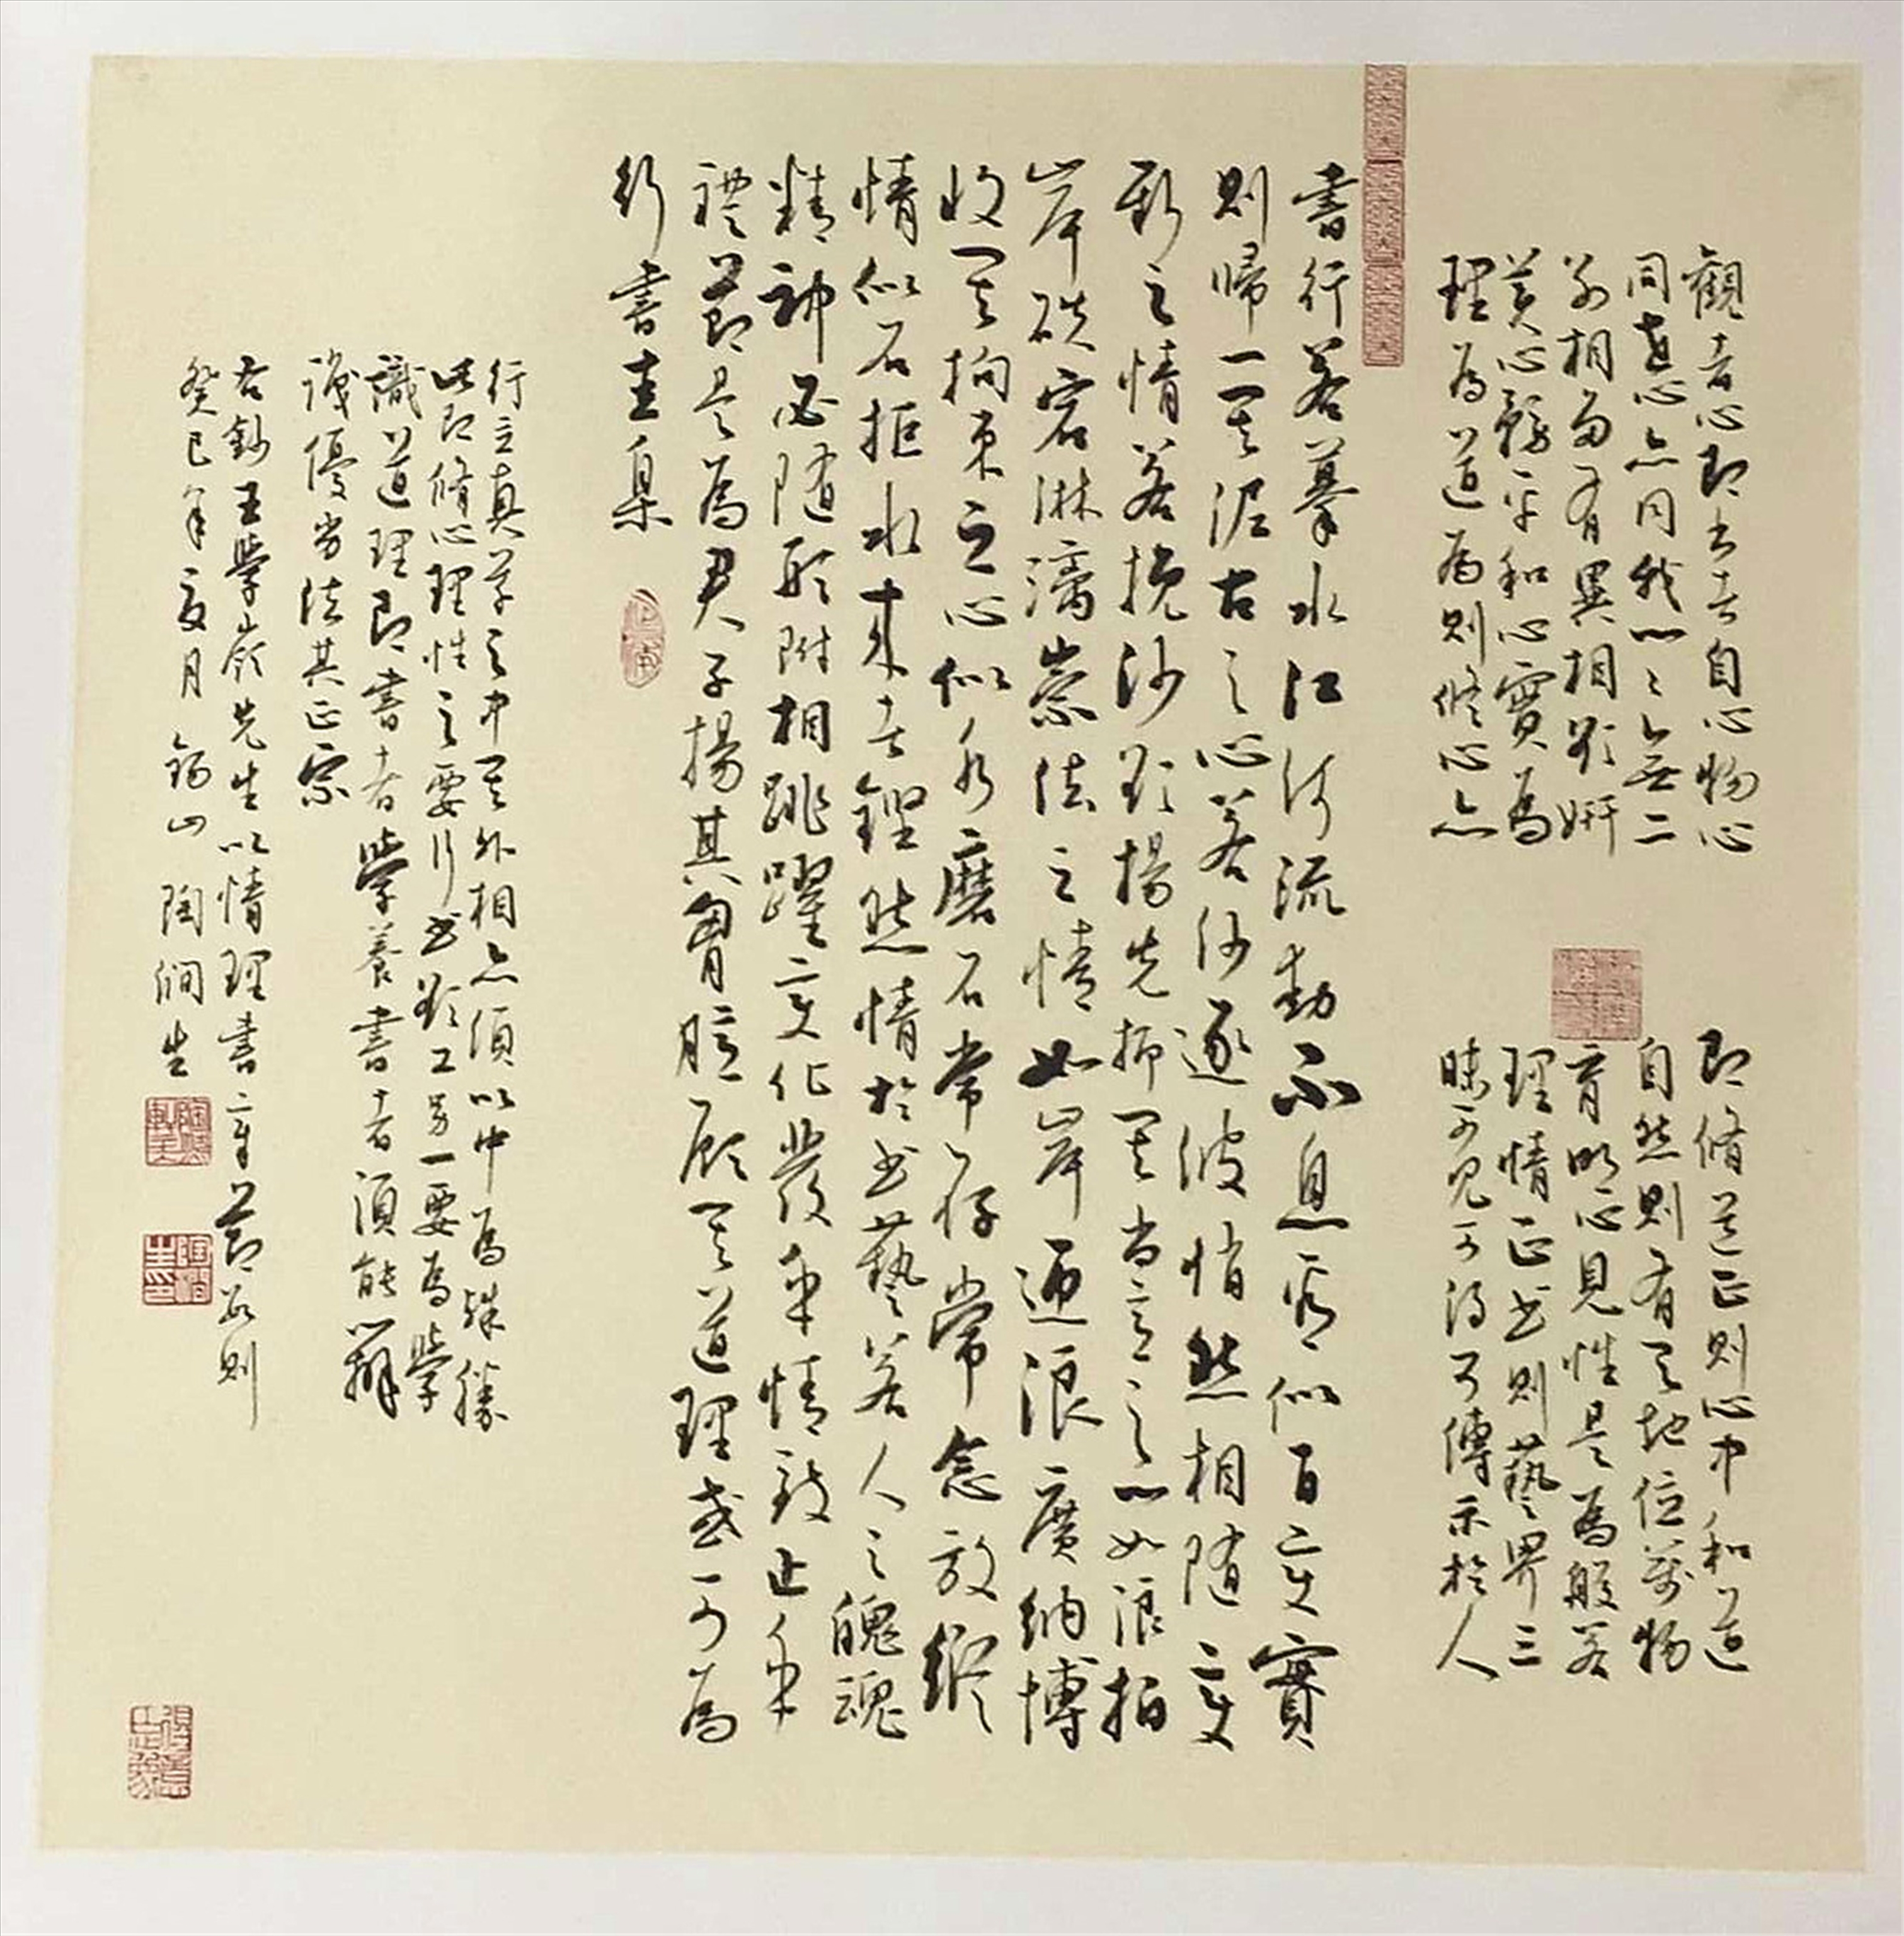 觀者心即書者自心物心
同其心亦同我心心無二
別相而有異相形妍
美心靜平和心實為
理為道為則修心亦
即修道正則心中和道
自然則有天地位萬物
育明心見性是為般若
理情正書則藝界三
昧可見可得可傳示於人
書行若摹水江河流動不息看似百變實
則歸一其泥古之心若沙逐波悄然相隨變
新之情若挽沙形揚先抑其書意之心如浪拍
岸跌宕淋漓崇法之情如岸迎浪廣納博
收其拘束之心似水磨石常存常念放縱
情似石拒水來去鏗然情於書藝若人之魄魂
精神必隨形附相跳躍變化發乎情致止乎
禮節是為君子揚其胸臆顧其道理或可為
行書圭臬
行立真草之中其外相亦須以中為殊勝
此即修心理性之要行書形工第一要為學
識道理即書者學養書者須能辨
識優劣法其正宗
右鈔王學嶺先生以情理書章節數則
癸巳年夏月錫山陶澗生